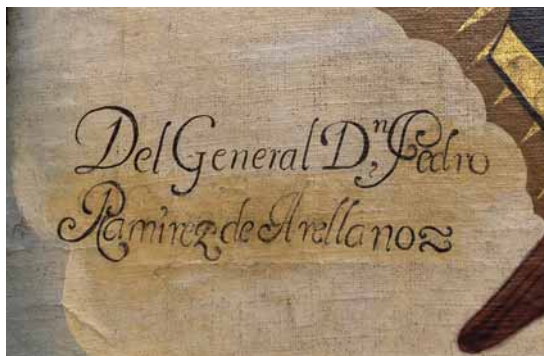 Del General Dⁿ. Pedro
Ramirez de Arellano